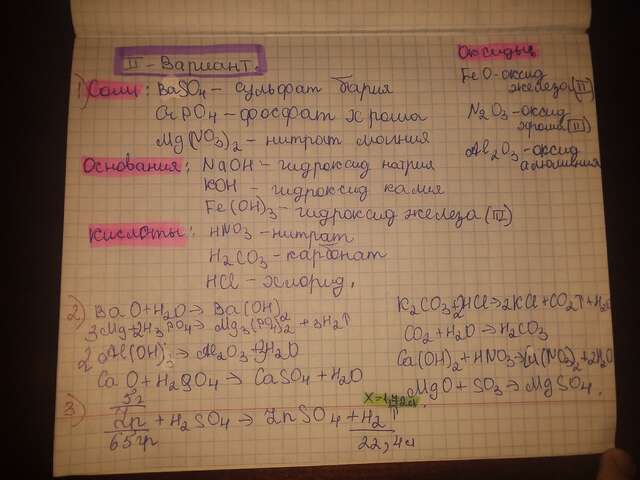 II - Вариант.
1) Соли: BaSO4 - сульфат бария
CrPO4 - фосфат хрома
Mg(NO3)2 - нитрат магния
Основания: NaOH - гидроксид натрия
KOH - гидроксид калия
Fe(OH)3 - гидроксид железа (III)
Кислоты: HNO3 - нитрат
H2CO3 - карбонат
HCl - хлорид.
Оксиды
FeO - оксид
железа (II)
N2O3 - оксид
хрома (III)
Al2O3 - оксид
алюминия
2) BaO + H2O → Ba(OH)2
3Mg + 2H3PO4 → Mg3(PO4)2 + 3H2↑
2Al(OH)3 → Al2O3 + 3H2O
CaO + H2SO4 → CaSO4 + H2O
K2CO3 + 2HCl → 2KCl + CO2↑ + H2O
CO2 + H2O → H2CO3
Ca(OH)2 + HNO3 → Ca(NO3)2 + 2H2O
MgO + SO3 → MgSO4.
3) 5г x = 1,72л
Zn + H2SO4 → ZnSO4 + H2↑
65гр 22,4л